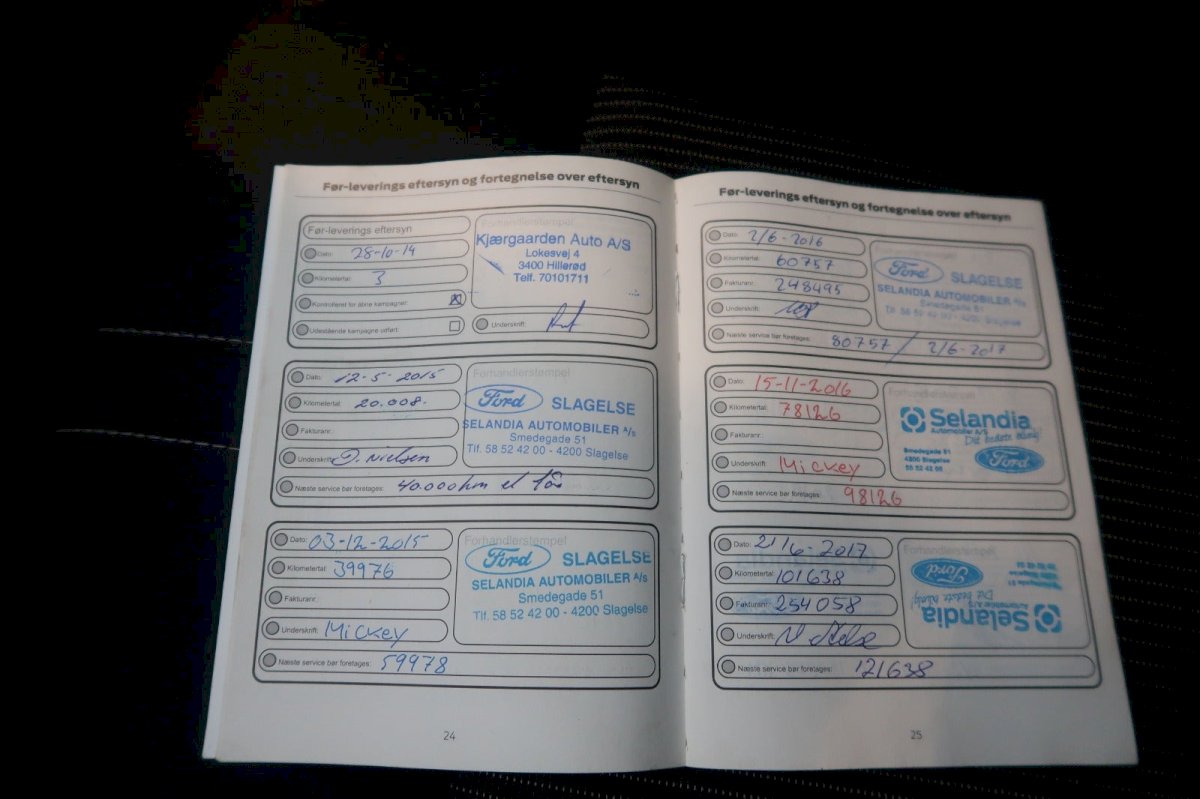 Før-leverings eftersyn og fortegnelse over eftersyn
Før-leverings eftersyn
Dato: 28-10-14
Kilometertal: 3
Kontrolleret for åbne kampagner: X
Udestående kampagne udført:
Forhandlerstempel
Kjærgaarden Auto A/S
Lokesvej 4
3400 Hillerød
Telf. 70101711
Underskrift:
Dato: 12-5-2015
Kilometertal: 20.008.
Fakturanr.:
Underskrift: D. Nielsen
Forhandlerstempel
Ford SLAGELSE
SELANDIA AUTOMOBILER A/S
Smedegade 51
Tlf. 58 52 42 00 - 4200 Slagelse
Næste service bør foretages: 40.000 km el 1 år
Dato: 03-12-2015
Kilometertal: 39976
Fakturanr.:
Underskrift: Mickey
Forhandlerstempel
Ford SLAGELSE
SELANDIA AUTOMOBILER A/S
Smedegade 51
Tlf. 58 52 42 00 - 4200 Slagelse
Næste service bør foretages: 59978
24
Før-leverings eftersyn og fortegnelse over eftersyn
Dato: 2/6-2016
Kilometertal: 60757
Fakturanr.: 248495
Underskrift:
Ford SLAGELSE
SELANDIA AUTOMOBILER A/S
Smedegade 51
Tlf. 58 52 42 00 - 4200 Slagelse
Næste service bør foretages: 80757 / 2/6-2017
Dato: 15-11-2016
Kilometertal: 78126
Fakturanr.:
Underskrift: Mickey
Forhandlerstempel
Selandia
Automobiler A/S
Det bedste bilvalg!
Smedegade 51
4200 Slagelse
58 52 42 00
Ford
Næste service bør foretages: 98126
Dato: 21/6-2017
Kilometertal: 101638
Fakturanr.: 254058
Underskrift:
Forhandlerstempel
Selandia
Automobiler A/S
Det bedste bilvalg!
Smedegade 51
4200 Slagelse
58 52 42 00
Ford
Næste service bør foretages: 121638
25